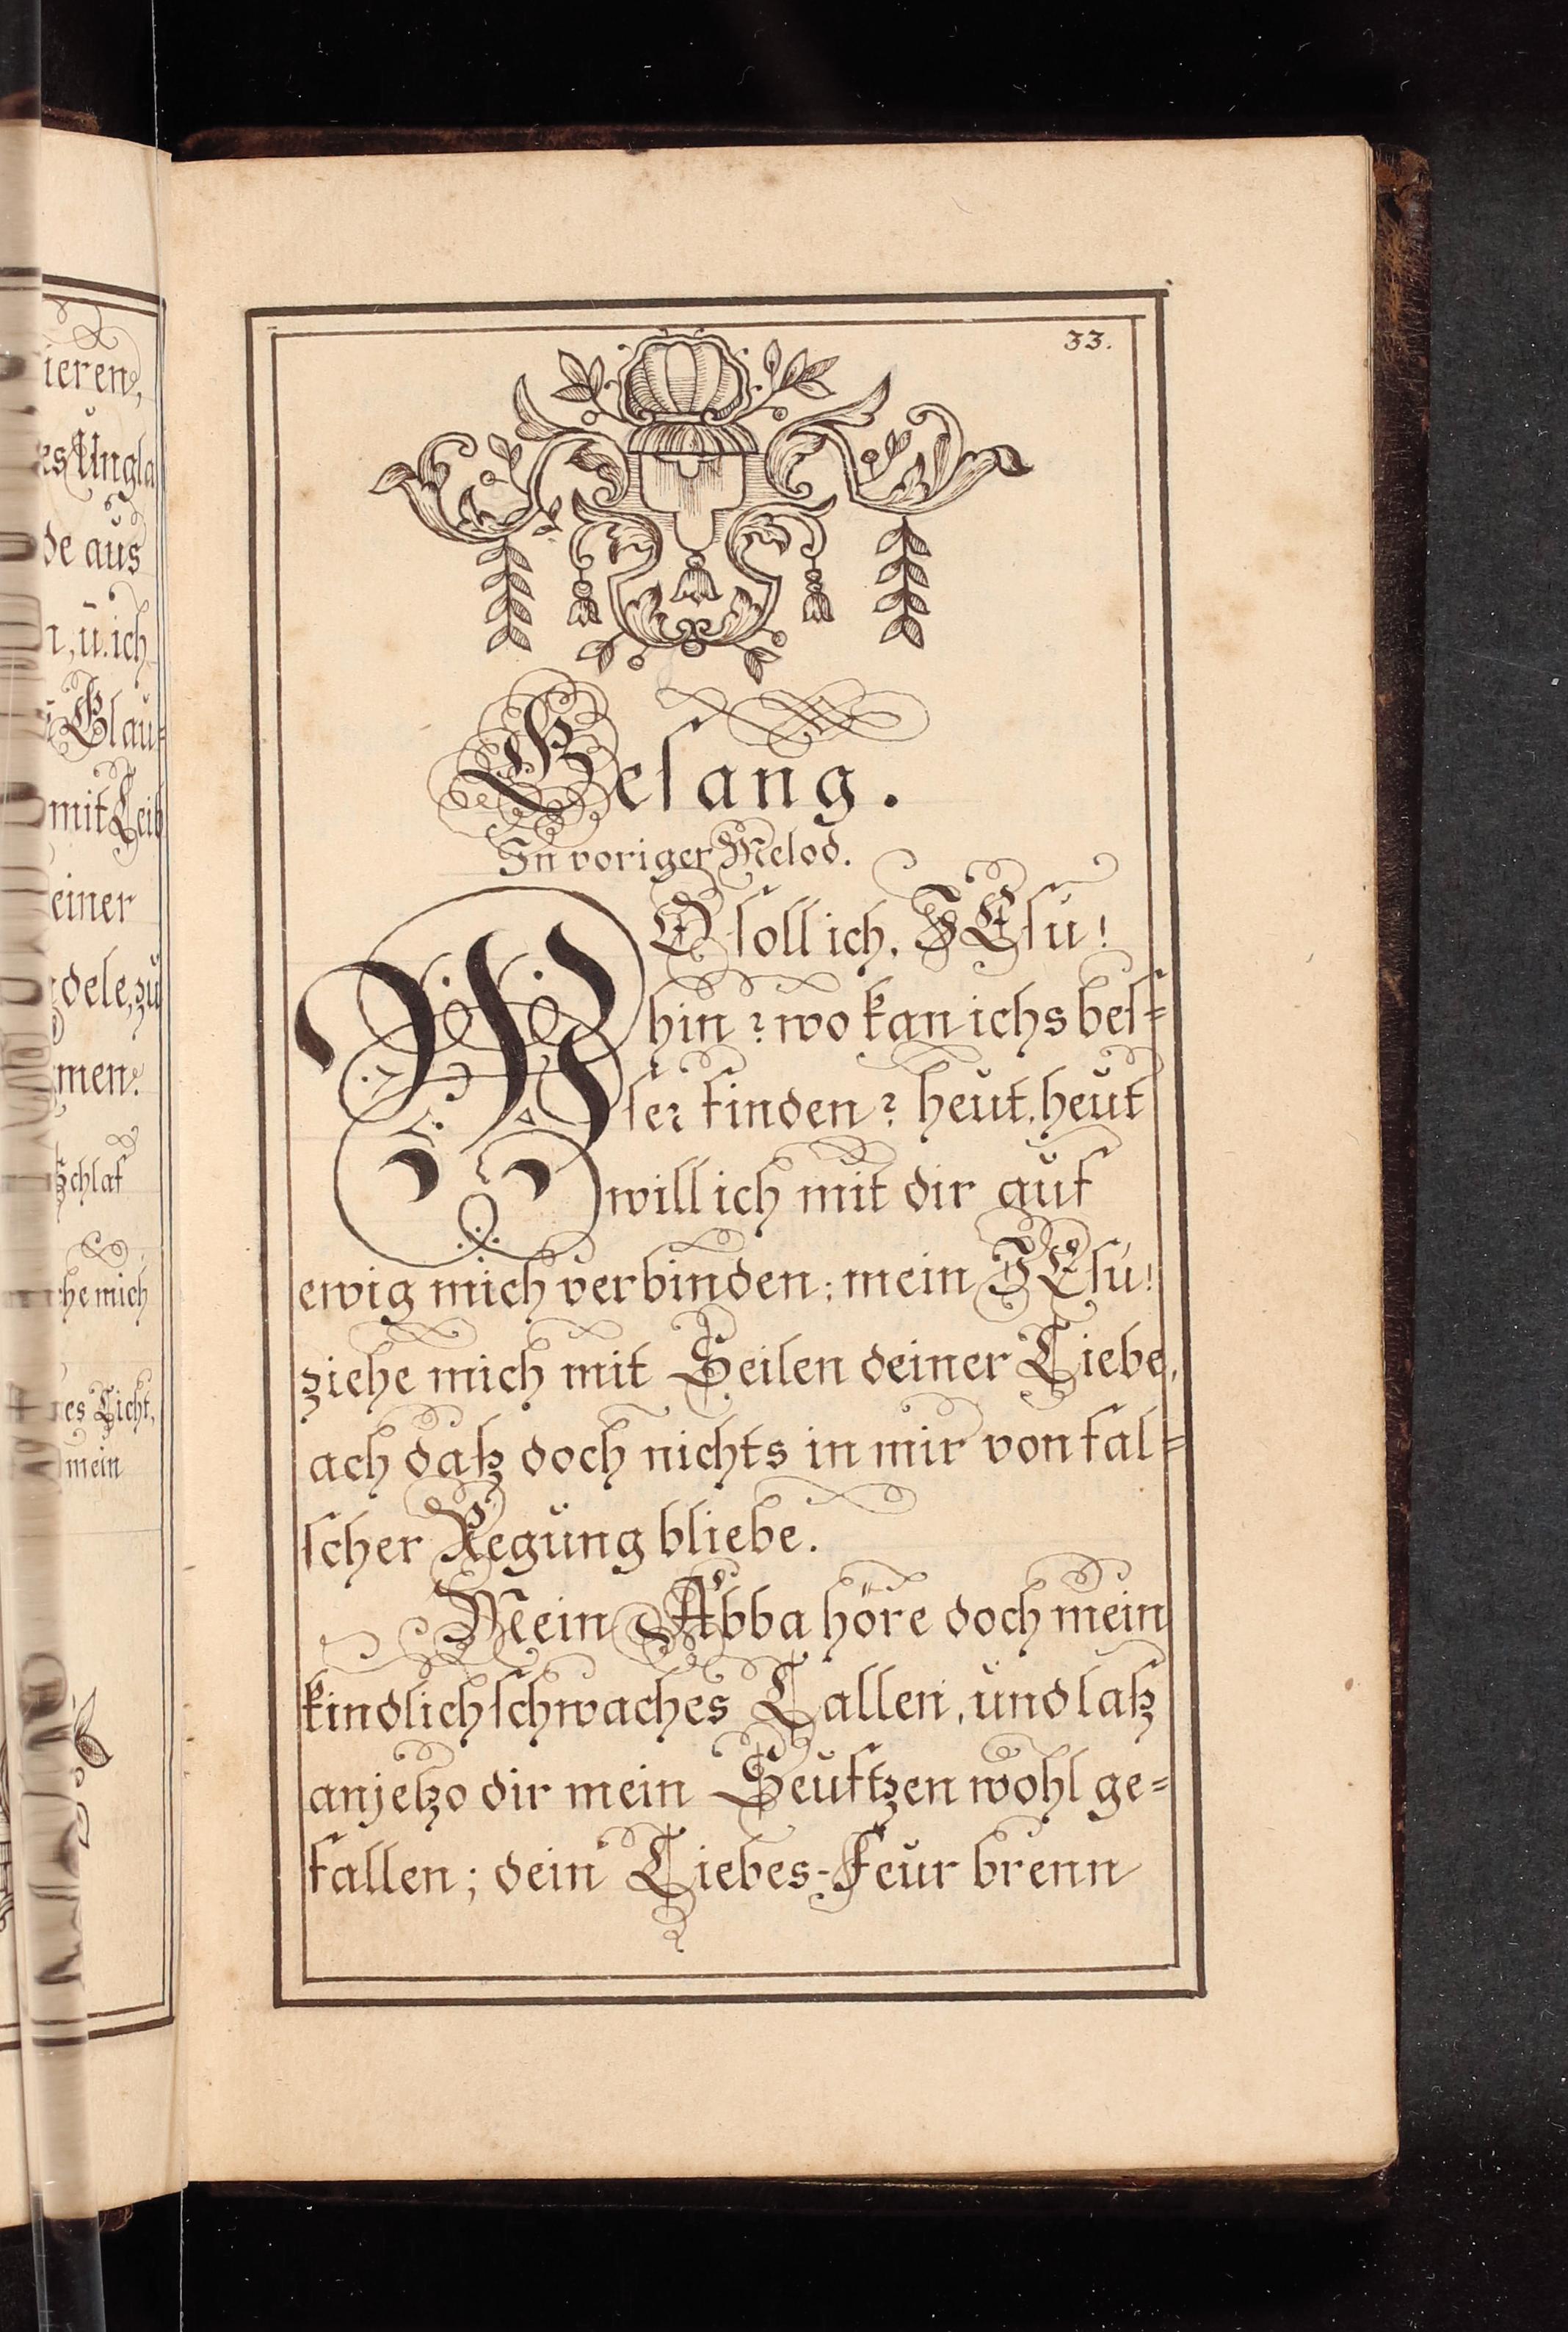 ieren,
es Ungla
de aus
n, ü. ich
Glau=
mit Leib
einer
dele, zu
men.
Schlaf
he mich
es Licht,
mein
33.
Gesang.
In voriger Melod.
WO soll ich, JEsu!
hin? wo kan ichs bes=
ser finden? heut, heut
will ich mit dir auf
ewig mich verbinden; mein JEsu!
ziehe mich mit Seilen deiner Liebe,
ach daß doch nichts in mir von fal=
scher Regung bliebe.
Mein Abba höre doch mein
kindlich schwaches Lallen, und laß
anjetzo dir mein Seufftzen wohl ge=
fallen; dein Liebes-Feur brenn